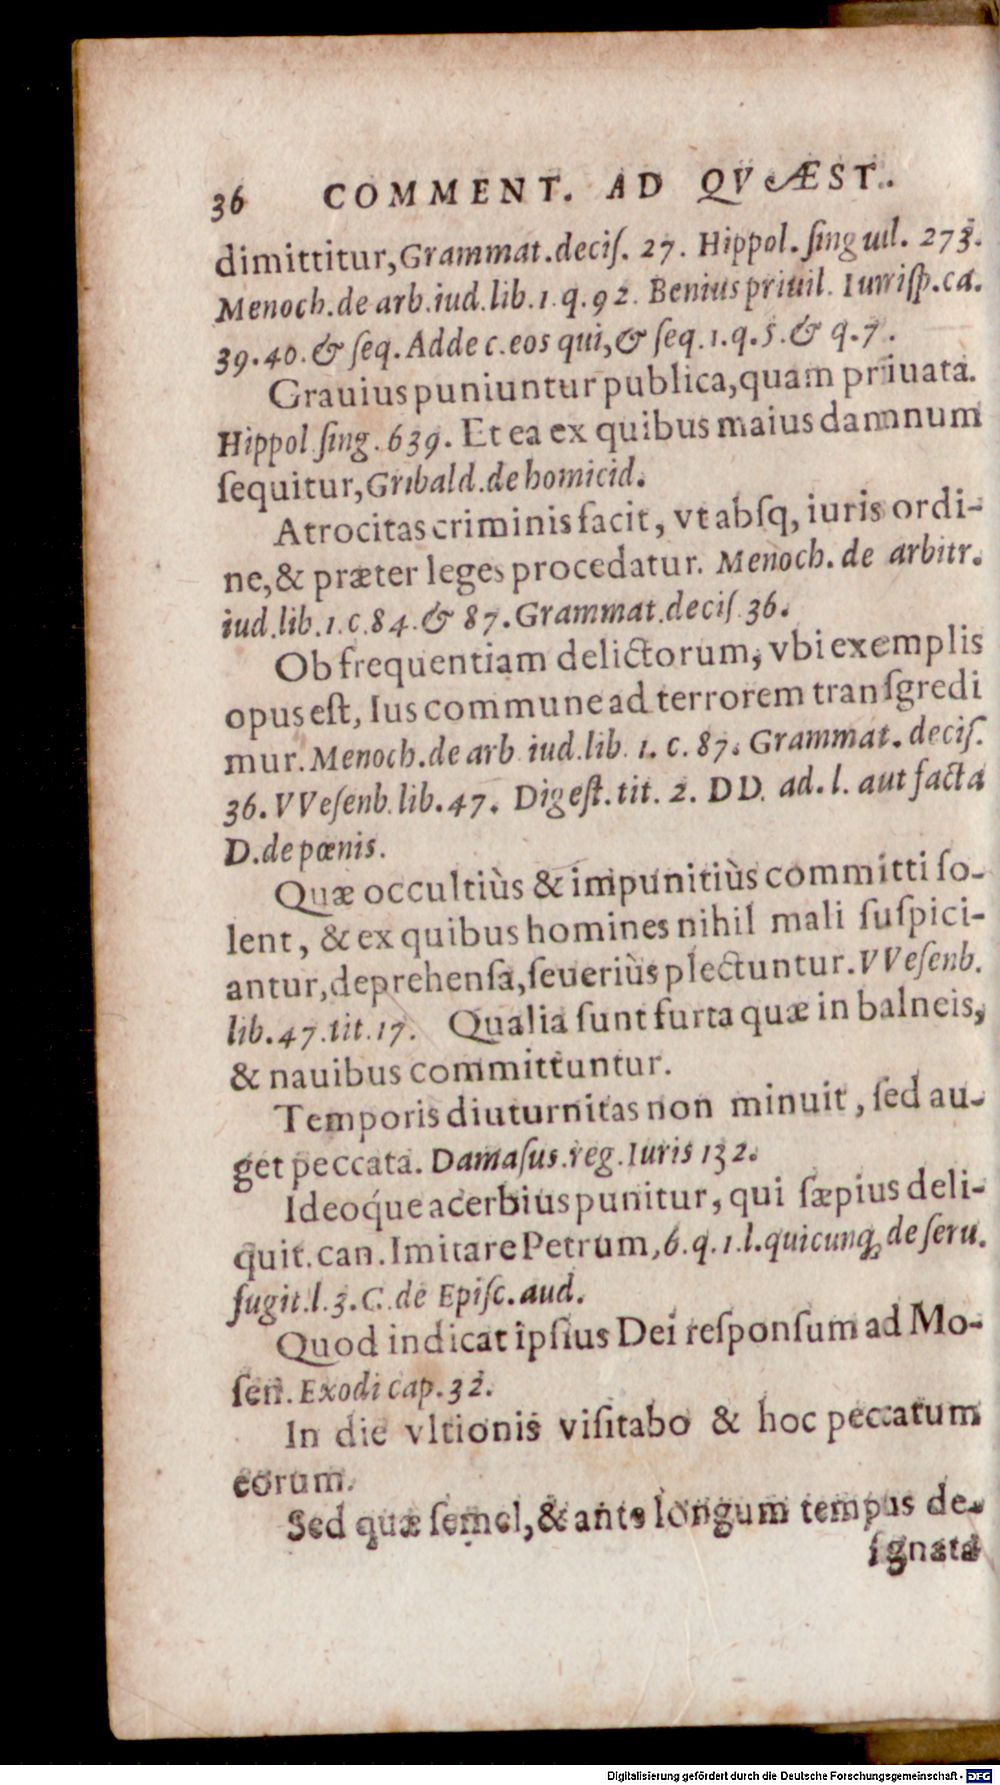 36 COMMENT. AD QVÆST.
dimittitur, Grammat. deciſ. 27. Hippol. ſinguil. 273.
Menoch. de arb. iud. lib. 1. q. 92. Benius priuil. Iurriſp. ca.
39. 40. & ſeq. Adde c. eos qui, & ſeq. 1. q. 5. & q. 7.
Grauius puniuntur publica, quam priuata.
Hippol ſing. 639. Et ea ex quibus maius damnum
ſequitur, Gribald. de homicid.
Atrocitas criminis facit, vt abſq, iuris ordi-
ne, & præter leges procedatur. Menoch. de arbitr.
iud. lib. 1. c. 84. & 87. Grammat. deciſ. 36.
Ob frequentiam delictorum, vbi exemplis
opus eſt, Ius commune ad terrorem tranſgredi
mur. Menoch. de arb. iud. lib. 1. c. 87. Grammat. deciſ.
36. VVeſenb. lib. 47. Digeſt. tit. 2. DD. ad. l. aut facta
D. de pœnis.
Quæ occultiùs & impunitiùs committi ſo-
lent, & ex quibus homines nihil mali ſuſpici-
antur, deprehenſa, ſeueriùs plectuntur. VVeſenb.
lib. 47. tit. 17. Qualia ſunt furta quæ in balneis,
& nauibus committuntur.
Temporis diuturnitas non minuit, ſed au-
get peccata. Damaſus. reg. Iuris 132.
Ideoq́ue acerbius punitur, qui ſæpius deli-
quit. can. Imitare Petrum, 6. q. 1. l. quicunq; de ſeru.
fugit. l. 3. C. de Epiſc. aud.
Quod indicat ipſius Dei reſponſum ad Mo-
ſen. Exodi cap. 32.
In die vltionis viſitabo & hoc peccatum
eorum.
Sed quæ ſemel, & ante longum tempus de-
ſignata
Digitalisierung gefördert durch die Deutsche Forschungsgemeinschaft - DFG